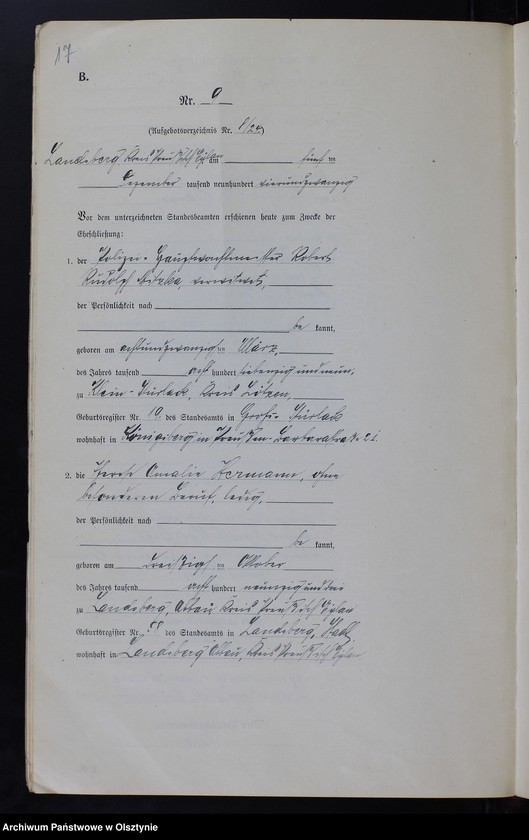 17
B.
Nr. 9
(Aufgebotsverzeichnis Nr. 8/24)
Landsberg, Kreis Preußisch Eylau am fünften
Dezember tausend neunhundert vierundzwanzig
Vor dem unterzeichneten Standesbeamten erschienen heute zum Zwecke der
Eheschließung:
1. der Polizei-Hauptwachtmeister Robert
Rudolf, verwitwet,
der Persönlichkeit nach
be kannt,
geboren am achtundzwanzigsten März
des Jahres tausend acht hundert siebenzig und neun,
zu Klein-Stürlack, Kreis Lötzen,
Geburtsregister Nr. 19 des Standesamts in Groß-Stürlack
wohnhaft in Königsberg in Preußen, Barbarastraße 21.
2. die Amalie Hermann, ohne
besonderen Beruf, ledig,
der Persönlichkeit nach
be kannt,
geboren am dreißigsten Oktober
des Jahres tausend acht hundert neunzig und drei
zu Landsberg, Abbau, Kreis Preußisch Eylau
Geburtsregister Nr. des Standesamts in Landsberg, Stadt,
wohnhaft in Landsberg Abbau, Kreis Preußisch Eylau
Archiwum Państwowe w Olsztynie